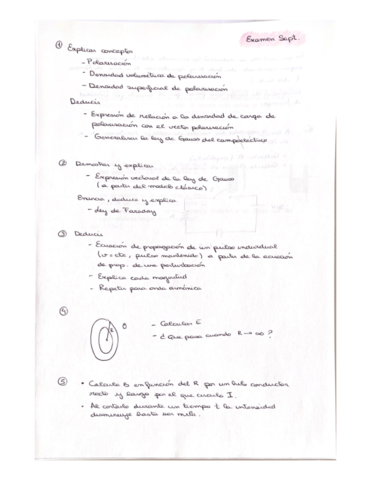 Examen Sept.
① Explicar conceptos
- Polarización
- Densidad volumétrica de polarización
- Densidad superficial de polarización
Deducir
- Expresión de relación a la densidad de carga de
polarización con el vector polarización
- Generalizar la ley de Gauss del campo eléctrico
② Demostrar y explicar
- Expresión vectorial de la ley de Gauss
(a partir del modelo clásico)
Enuncia, deduce y explica
- Ley de Faraday
③ Deducir
- Ecuación de propagación de un pulso individual
(v = cte, pulso mantenido) a partir de la ecuación
de prop. de una perturbación
- Explica cada magnitud
- Repetir para onda armónica
④
- Calcular E
- ¿Que pasa cuando R → ∞ ?
⑤ • Calcula B en función del R por un hilo conductor
recto y largo por el que circula I.
• Al cortarlo durante un tiempo t la intensidad
disminuye hasta ser nula.